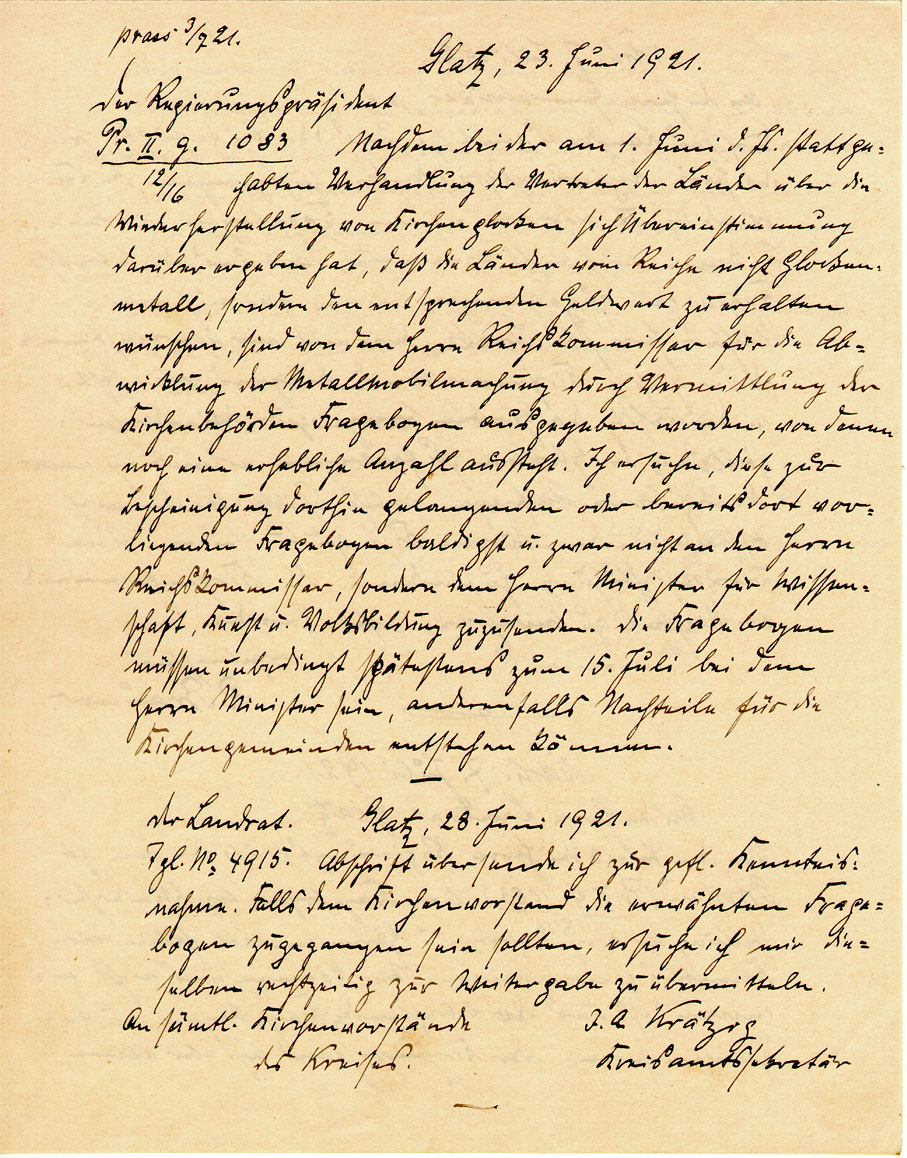 praes 3/7 21.
Glatz, 23. Juni 1921.
Der Regierungspräsident
Pr. II. g. 1083 Nachdem bei der am 1. Juni d. Js. stattge-
12/16 habten Verhandlung der Vertreter der Länder über die
Wiederherstellung von Kirchenglocken sich Übereinstimmung
darüber ergeben hat, daß die Länder vom Reiche nicht Glocken-
metall, sondern den entsprechenden Geldwert zu erhalten
wünschen, sind von dem Herrn Reichskommissar für die Ab-
wicklung der Metallmobilmachung durch Vermittlung der
Kirchenbehörden Fragebogen ausgegeben worden, von denen
noch eine erhebliche Anzahl aussteht. Ich ersuche, diese zur
Bescheinigung dorthin gelangenden oder bereits dort vor-
liegenden Fragebogen baldigst u. zwar nicht an den Herrn
Reichskommissar, sondern dem Herrn Minister für Wissen-
schaft, Kunst u. Volksbildung zuzusenden. Die Fragebogen
müssen unbedingt spätestens zum 15. Juli bei dem
Herrn Minister sein, anderenfalls Nachteile für die
Kirchengemeinden entstehen können.
Der Landrat. Glatz, 28. Juni 1921.
Tgl. No. 4915. Abschrift übersende ich zur gefl. Kenntnis-
nahme. Falls dem Kirchenvorstand die erwähnten Frage-
bogen zugegangen sein sollten, ersuche ich mir die-
selben rechtzeitig zur Weitergabe zu übermitteln.
An sämtl. Kirchenvorstände J. A Krätzig
des Kreises. Kreisamtssekretär